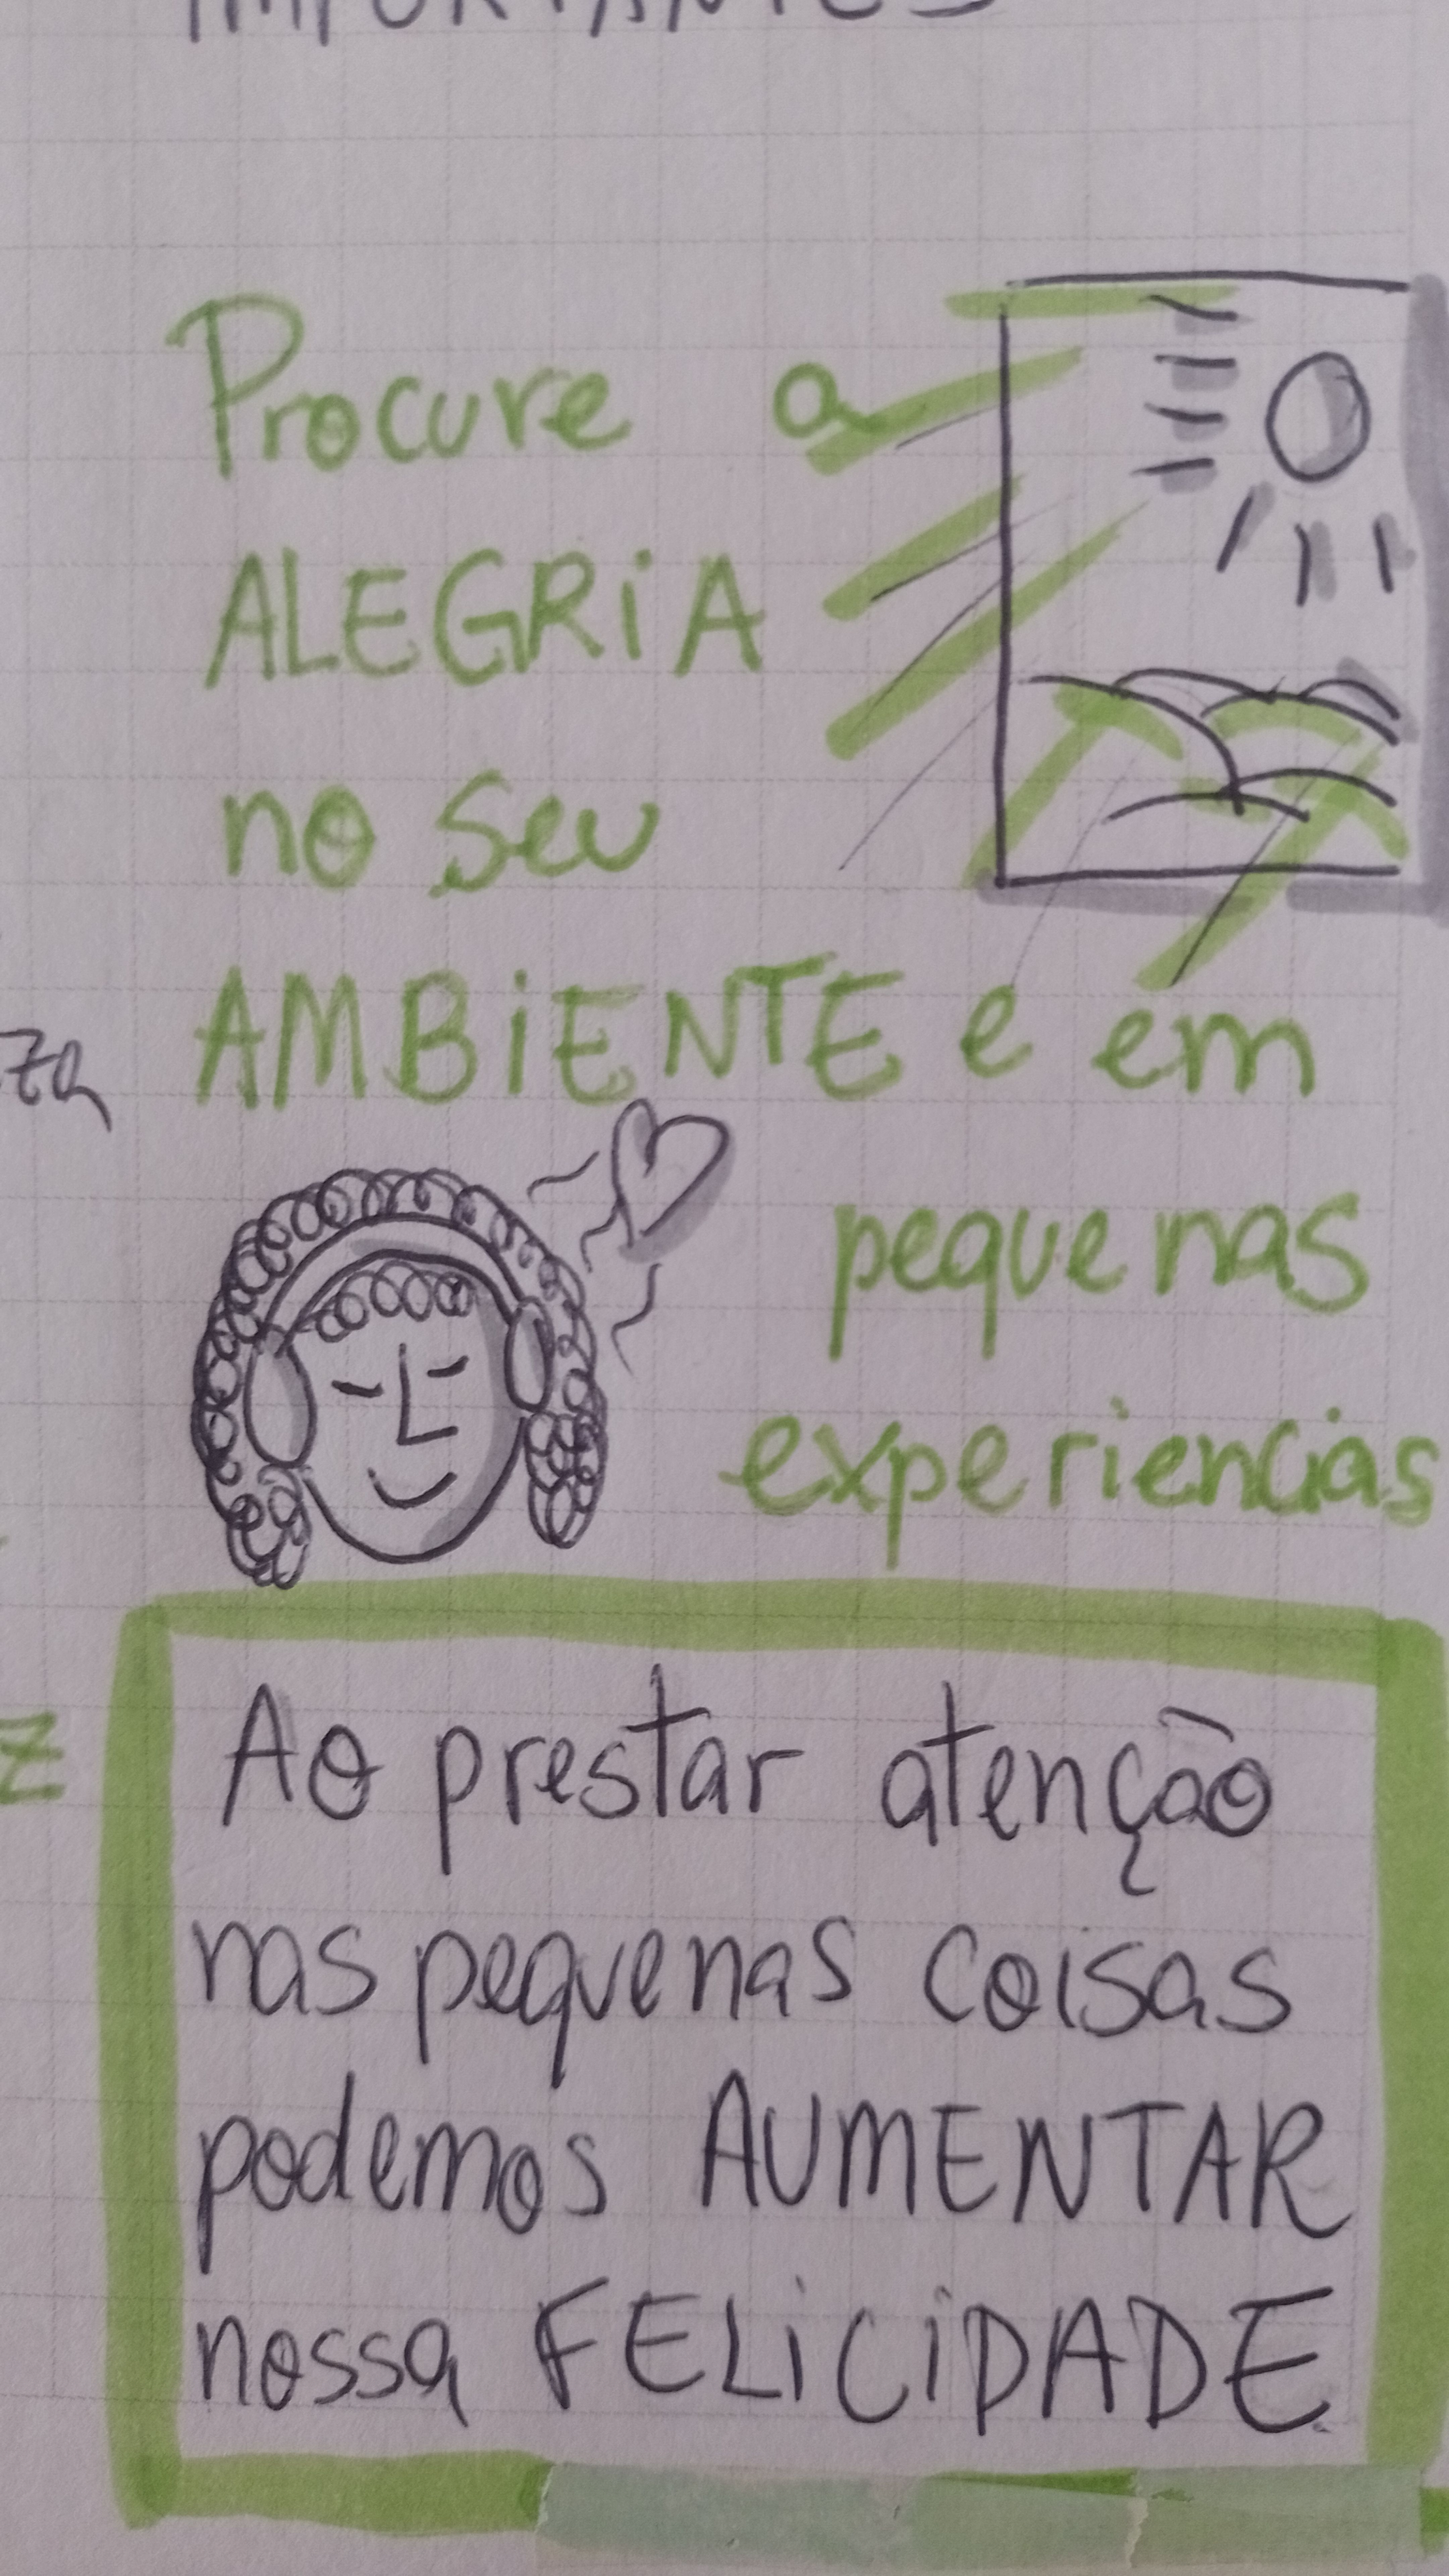 IMPORTANTES
Procure a
ALEGRiA
no seu
AMBiENTE e em
pequenas
experiencias
Ao prestar atenção
nas pequenas coisas
podemos AUMENTAR
nossa FELiCiDADE.